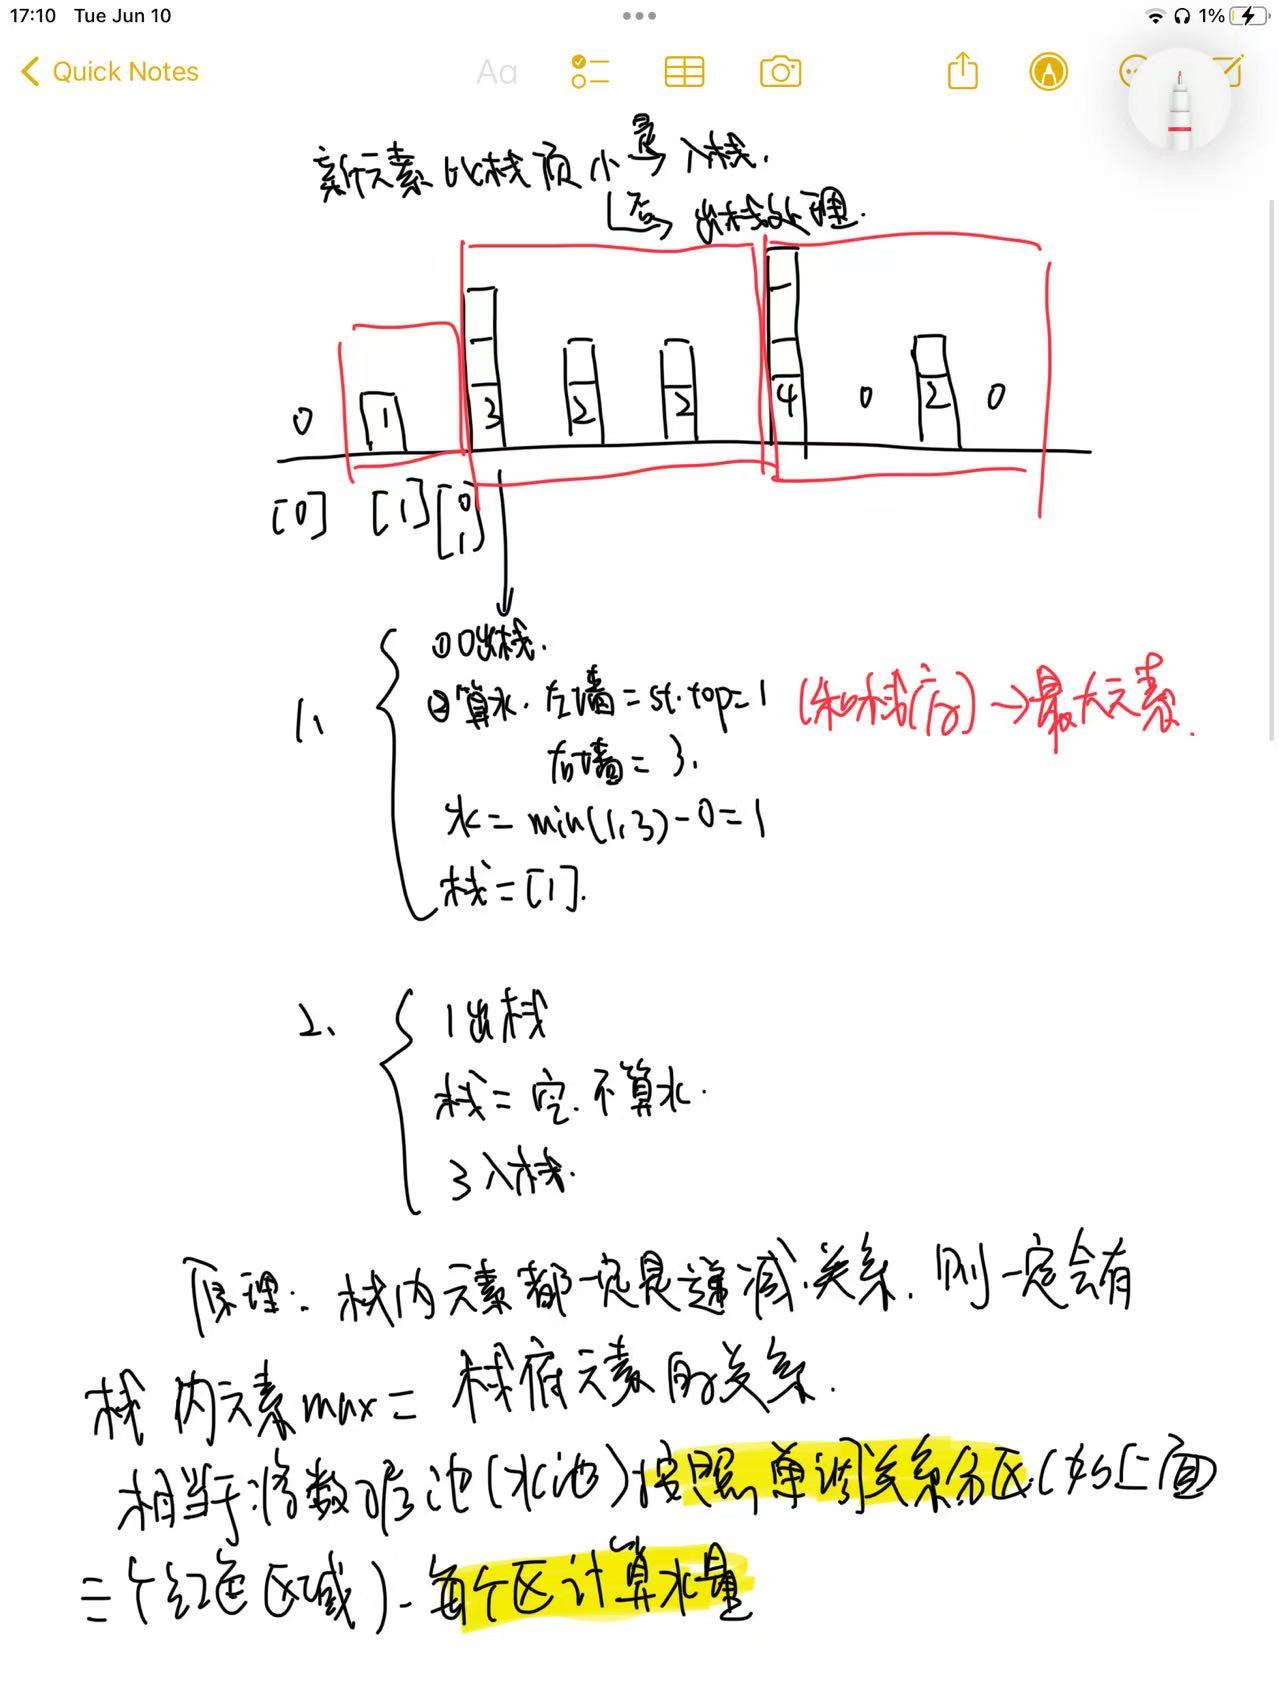 17:10 Tue Jun 10
1%
Quick Notes
Aa
新元素比栈顶小 是→ 入栈.
否→ 出栈处理.
0 1 3 2 2 4 0 2 0
[0] [1] [0
1]
1、
①0出栈.
②算水. 左墙=st.top=1 (和栈 ) →最大元素.
右墙=3.
水=min(1,3)-0=1
栈=[1].
2、
1出栈
栈=空.不算水.
3入栈.
原理: 栈内元素都一定是递减关系. 则一定会有
栈内元素max= 栈底元素的关系.
相当于将数 池(水池)按照单调关系分区(如上面
三个红色区域).每个区计算水量